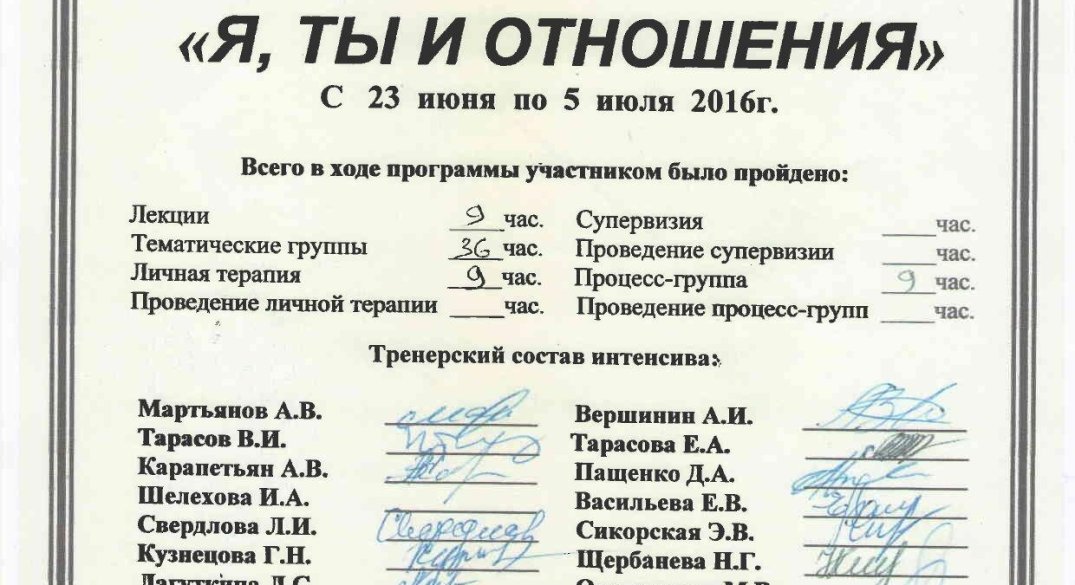 «Я, ТЫ И ОТНОШЕНИЯ»
С 23 июня по 5 июля 2016г.
Всего в ходе программы участником было пройдено:
Лекции 9 час. Супервизия ____час.
Тематические группы 36 час. Проведение супервизии ____час.
Личная терапия 9 час. Процесс-группа 9 час.
Проведение личной терапии ____час. Проведение процесс-групп ____час.
Тренерский состав интенсива:
Мартьянов А.В. Вершинин А.И.
Тарасов В.И. Тарасова Е.А.
Карапетьян А.В. Пащенко Д.А.
Шелехова И.А. Васильева Е.В.
Свердлова Л.И. Сикорская Э.В.
Кузнецова Г.Н. Щербанева Н.Г.
Лагуткина Л.С.